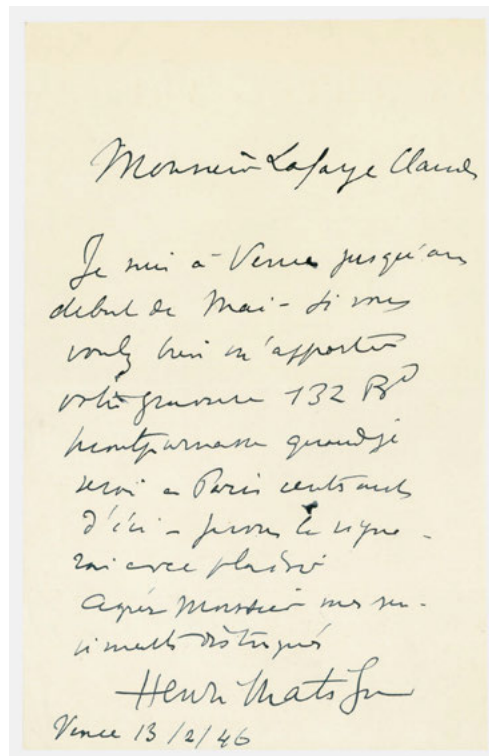 Monsieur Lafaye Claude
Je suis à Vence jusqu'au
début de Mai - si vous
voulez bien m'apporter
votre gravure 132 Bd
Montparnasse quand je
serai à Paris
d'ici - je vous la signe-
rai avec plaisir
agréez Monsieur mes sen-
timents distingués
Henri Matisse
Vence 13/2/46